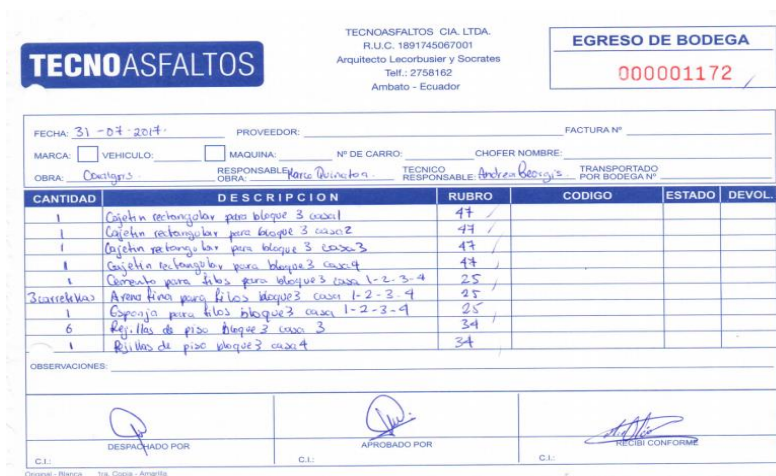 TECNOASFALTOS
TECNOASFALTOS CIA. LTDA.
R.U.C. 1891745067001
Arquitecto Lecorbusier y Socrates
Telf.: 2758162
Ambato - Ecuador
EGRESO DE BODEGA
000001172
FECHA: 31-07-2017. PROVEEDOR: FACTURA Nº
MARCA: VEHICULO: MAQUINA: Nº DE CARRO: CHOFER NOMBRE:
OBRA: RESPONSABLE OBRA: Marco TECNICO RESPONSABLE: Andrea TRANSPORTADO POR BODEGA Nº
CANTIDAD DESCRIPCION RUBRO CODIGO ESTADO DEVOL.
1 Cajetin rectangolar para bloque 3 casa1 47
1 Cajetin rectangolar para bloque 3 casa2 47
1 Cajetin rectangolar para bloque 3 casa3 47
1 Cajetin rectangolar para bloque 3 casa4 47
1 Cemento para filos para bloque 3 casa 1-2-3-4 25
3 carretillas Arena fina para filos bloque 3 casa 1-2-3-4 25
1 Esponja para filos bloque 3 casa 1-2-3-4 25
6 Rejillas de piso bloque 3 casa 3 34
1 Rejillas de piso bloque 3 casa 4 34
OBSERVACIONES:
DESPACHADO POR APROBADO POR RECIBI CONFORME
C.I.: C.I.: C.I.:
Original - Blanca 1ra. Copia - Amarilla